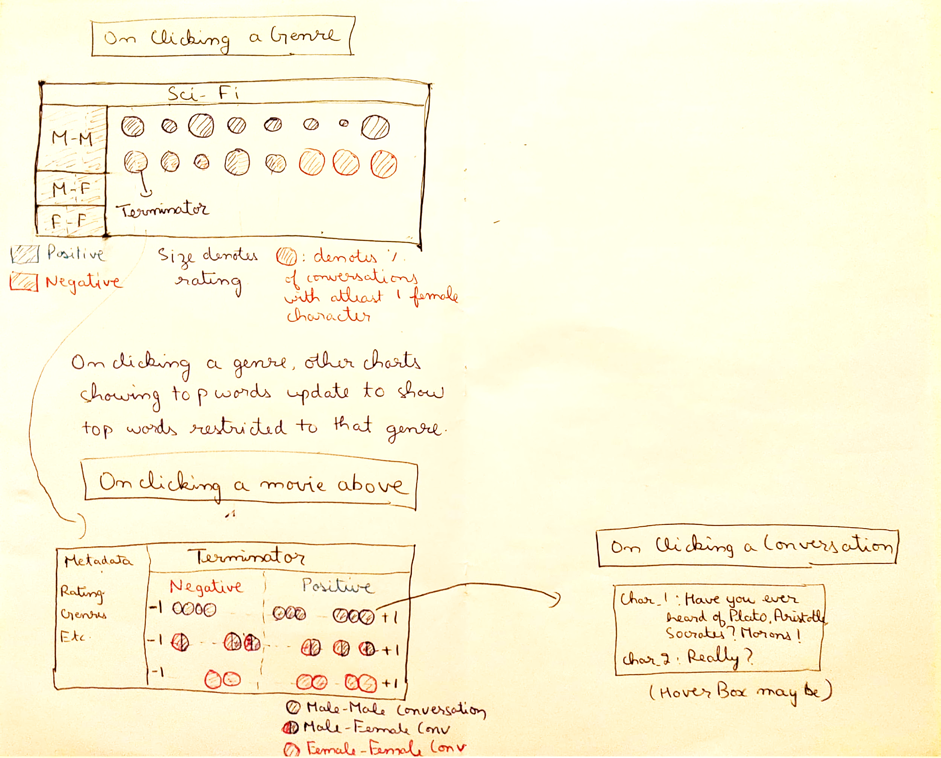 On Clicking a Genre
Sci-Fi
M-M
M-F
F-F
Terminator
Positive
Negative
Size denotes
rating
: denotes %
of conversations
with atleast 1 female
character
On clicking a genre, other charts
showing top words update to show
top words restricted to that genre.
On clicking a movie above
Metadata
Rating
Genres
Etc.
Terminator
Negative Positive
-1 +1
-1 +1
-1 +1
Male-Male Conversation
Male-Female Conv
Female-Female Conv
On Clicking a Conversation
Char_1: Have you ever
heard of Plato, Aristotle,
Socrates? Morons!
Char_2: Really?
(Hover Box may be)